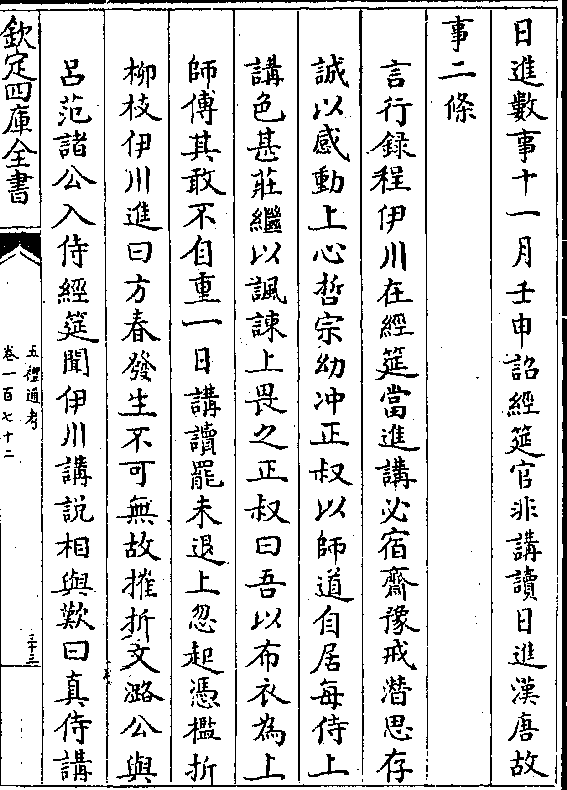 日進數事十一月壬申詔經筵官非講讀日進漢唐故
事二條
言行録程伊川在經筵當進講必宿齋豫戒潜思存
誠以感動上心哲宗幼冲正叔以師道自居每侍上
講色甚莊繼以諷諫上畏之正叔曰吾以布衣為上
師傅其敢不自重一日講讀罷未退上忽起憑檻折
柳枝伊川進曰方春發生不可無故摧折文潞公與
吕范諸公入侍經筵聞伊川講説相與歎曰真侍講
欽定四庫全書
五禮通考
卷一百七十二
三十三